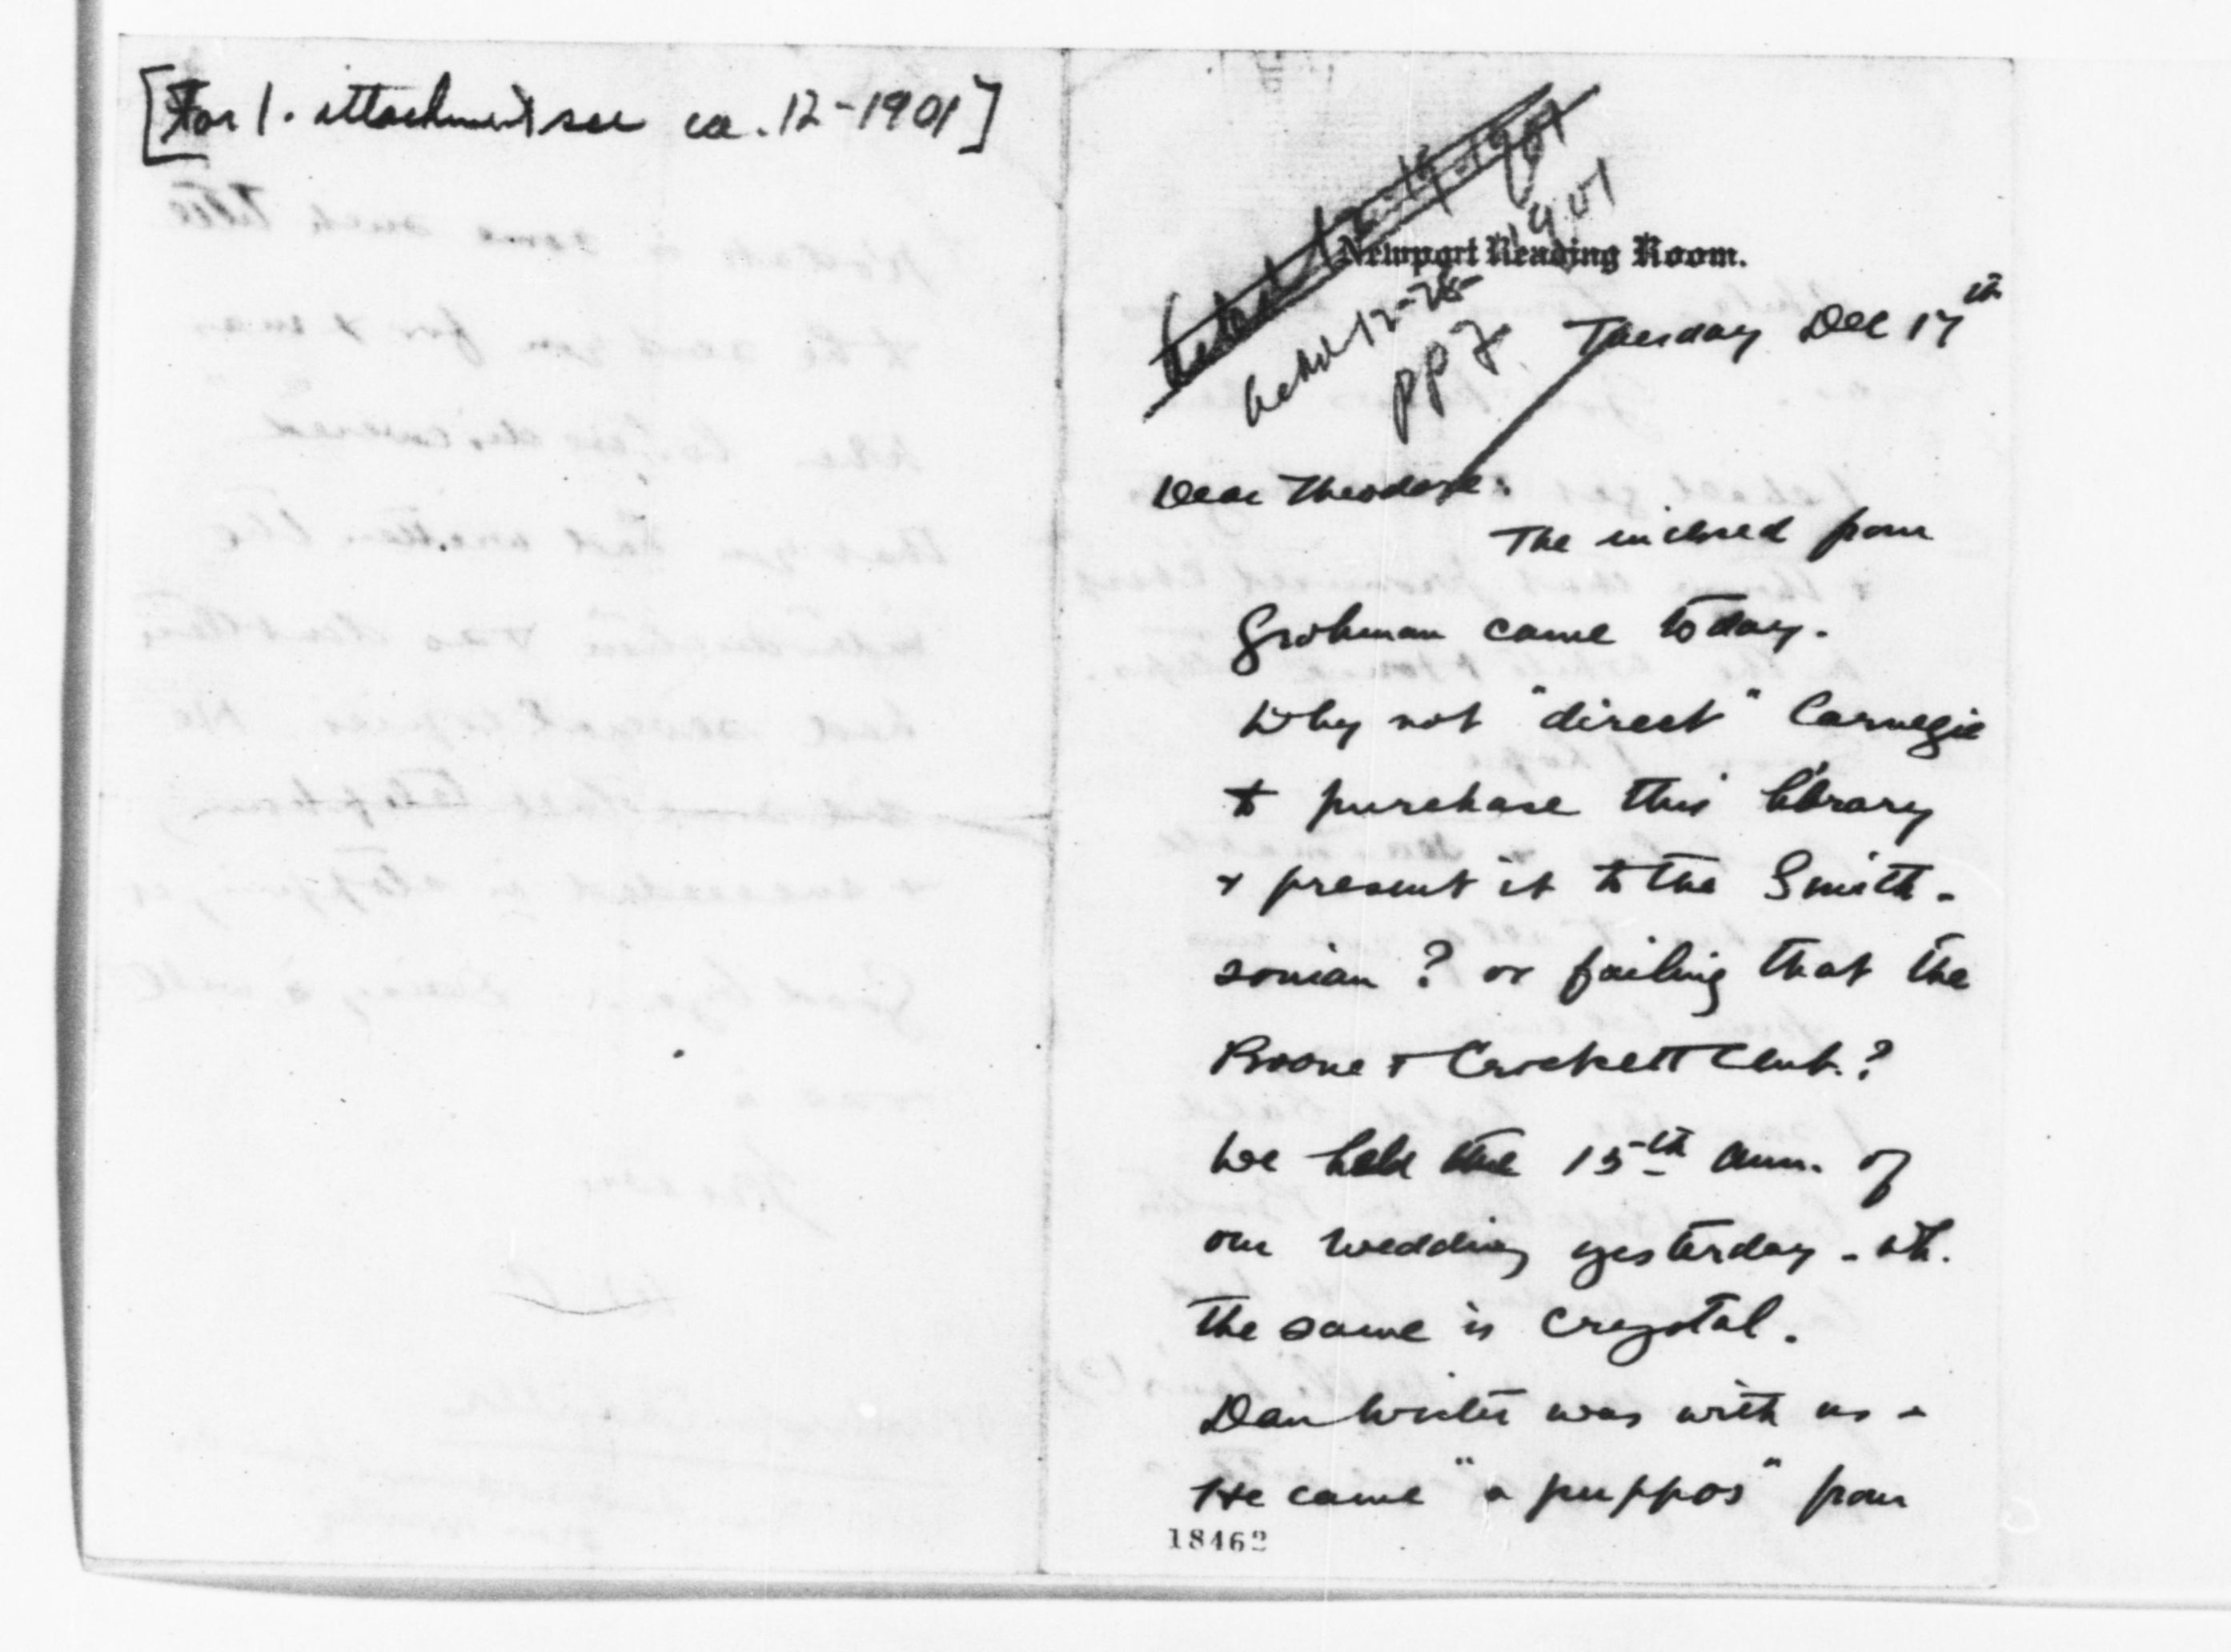 [For 1. attachment see ca. 12-1901]
Ackd 12-19-1901
1901
Newport Reading Room.
Ackd 12-28-
ppF
Tuesday Dec 17th
Dear Theodore.
The inclosed from
Grohman came today.
Why not "direct" Carnegie
to purchase this library
& present it to the Smith-
sonian? or failing that the
Boone & Crockett Club.?
We held the 15th ann. of
our wedding yesterday - wh.
the same is Crystal.
Dan Wister was with us -
He came "a puppos" from
18462